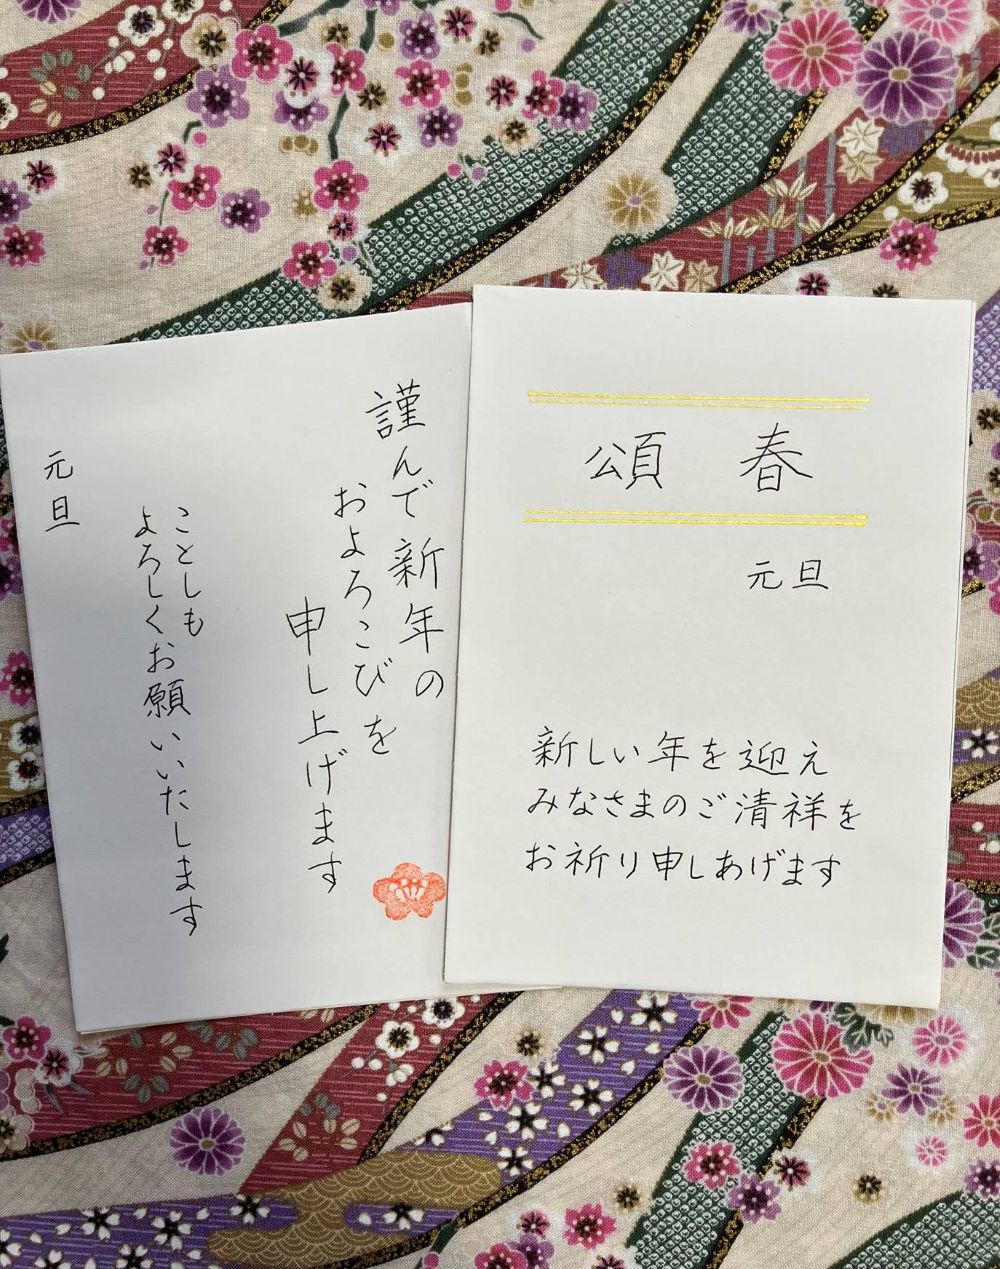 謹んで新年の
およろこびを
申し上げます
ことしも
よろしくお願いいたします
元旦
頌 春
元旦
新しい年を迎え
みなさまのご清祥を
お祈り申しあげます